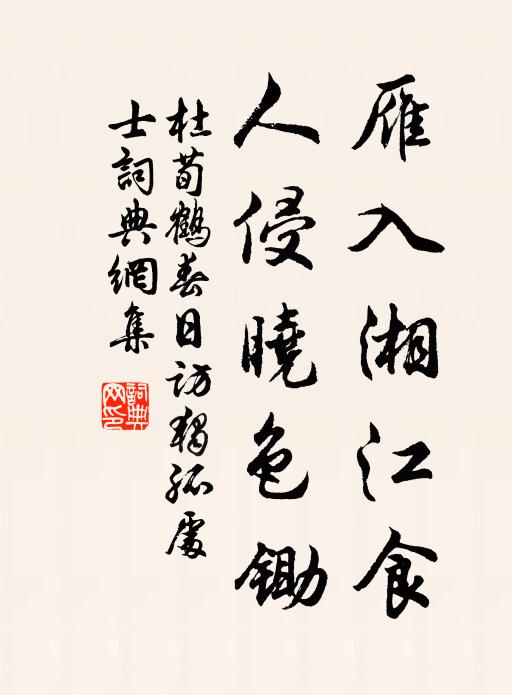 雁入湘江食
人侵曉色鋤
杜荀鶴春日訪獨孤處
士詞典網集
詞典網印